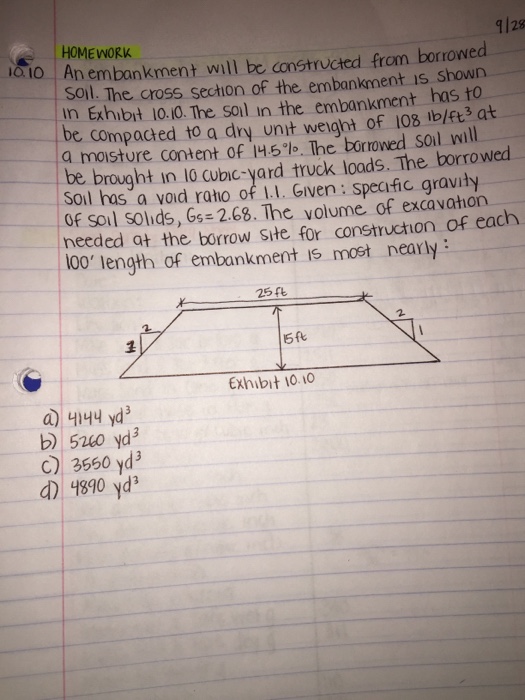 9/28
HOMEWORK
10.10 An embankment will be constructed from borrowed
soil. The cross section of the embankment is shown
in Exhibit 10.10. The soil in the embankment has to
be compacted to a dry unit weight of 108 lb/ft³ at
a moisture content of 14.5%. The borrowed soil will
be brought in 10 cubic-yard truck loads. The borrowed
soil has a void ratio of 1.1. Given: specific gravity
of soil solids, Gs = 2.68. The volume of excavation
needed at the borrow site for construction of each
100' length of embankment is most nearly:
25 ft
2
1
15 ft
2
1
Exhibit 10.10
a) 4144 yd³
b) 5260 yd³
c) 3550 yd³
d) 4890 yd³